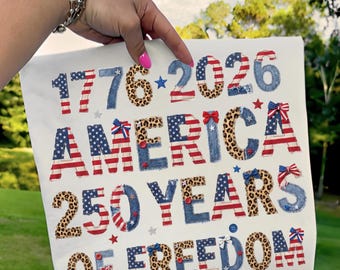 1776 2026
AMERICA
250 YEARS
OF FREEDOM